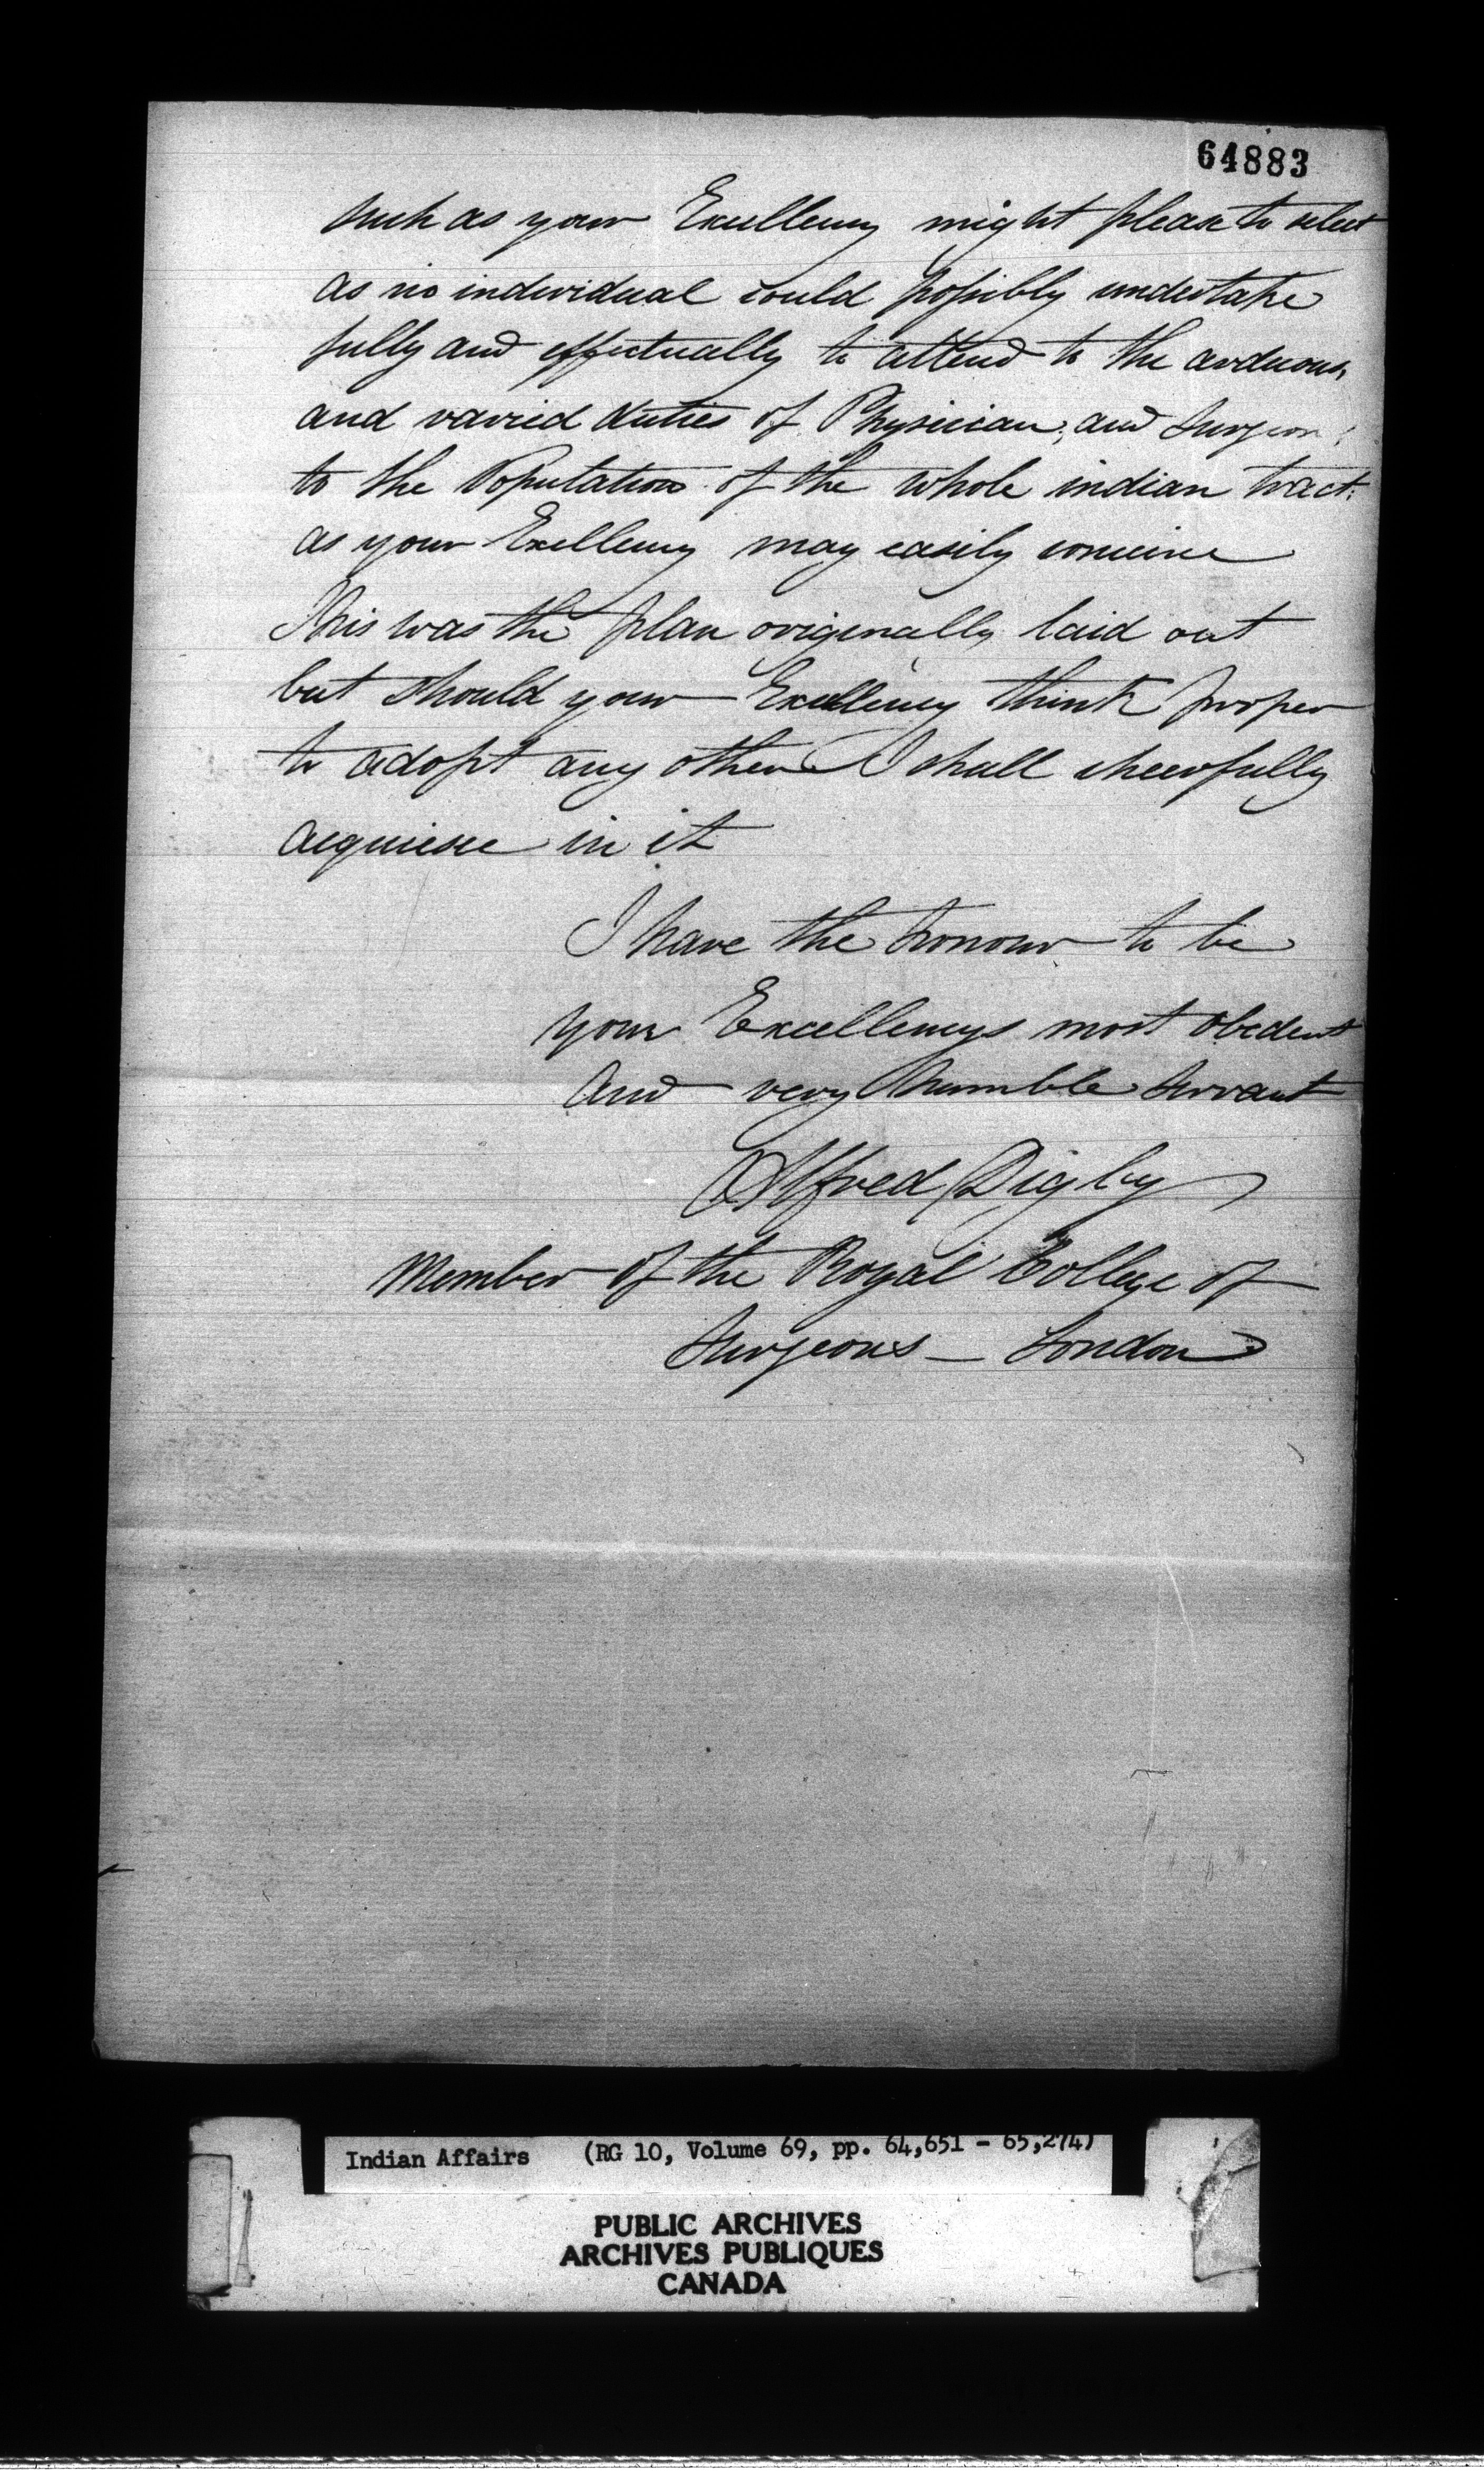 64883
such as your Excellency might please to select
as no individual could possibly undertake
fully and effectually to attend to the arduous,
and varied duties of Physician, and Surgeon,
to the Population of the whole indian tract:
as your Excellency may easily conceive
This was the plan originally laid out
but should your Excellency think proper
to adopt any other I shall cheerfully
acquiesce in it
I have the honour to be
your Excellencys most obedent
and very humble Servant
Alfred Digby
Member of the Royal College of
Surgeons — London
Indian Affairs (RG 10, Volume 69, pp. 64,651 - 65,274)
PUBLIC ARCHIVES
ARCHIVES PUBLIQUES
CANADA